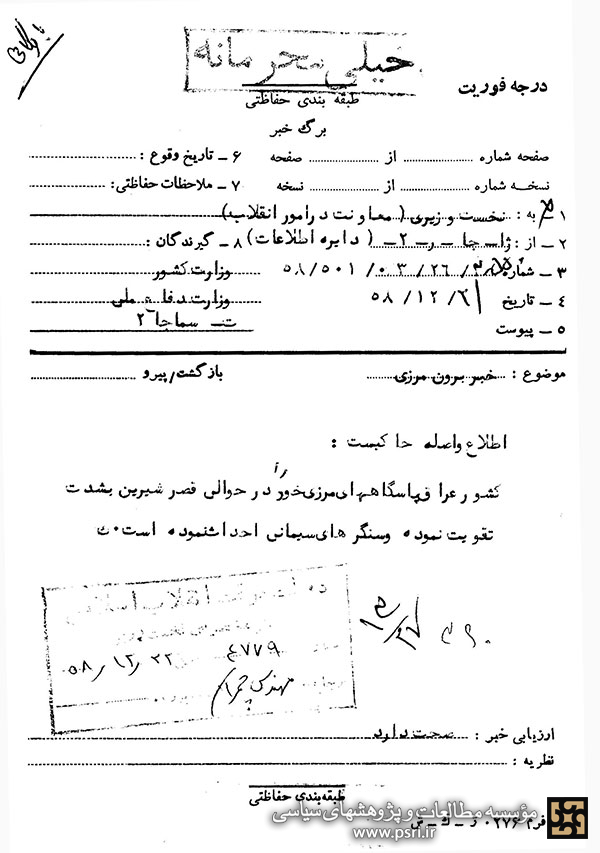 بایگانی
خیلی محرمانه
درجه فوریت
طبقه بندی حفاظتی
برگ خبر
صفحه شماره از صفحه
۶ – تاریخ وقوع :
نسخه شماره از نسخه
۷ – ملاحظات حفاظتی:
۱ – به : نخست وزیری ( معاونت در امور انقلاب)
۲ – از: ژاـجاـرـ۲ـ (دایره اطلاعات)
۸ – گیرندگان :
۳ – شماره ۵۸/۵۰۱/۰۳/۲۶/
وزارت کشور
۴ – تاریخ ۵۸/۱۲/۶
وزارت دفاع ملی
۵ – پیوست
ت ـ سماجا ۲
موضوع : خبر برون مرزی
بازگشت/پیرو
اطلاع واصله حاکیست :
کشور عراق پاسگاههای مرزی خود را در حوالی قصر شیرین بشدت
تقویت نموده وسنگرهای سیمانی احداث نموده است. ک
انقلاب اسلامی
۴۷۷۹
۵۸/۱۲/۲۲
مهندس چمران
ارزیابی خبر : صحت دارد
نظریه :
طبقه‌بندی حفاظتی
فرم ۰۲۷۶ و – ک – ص
مؤسسه مطالعات و پژوهشهای سیاسی
www.psri.ir